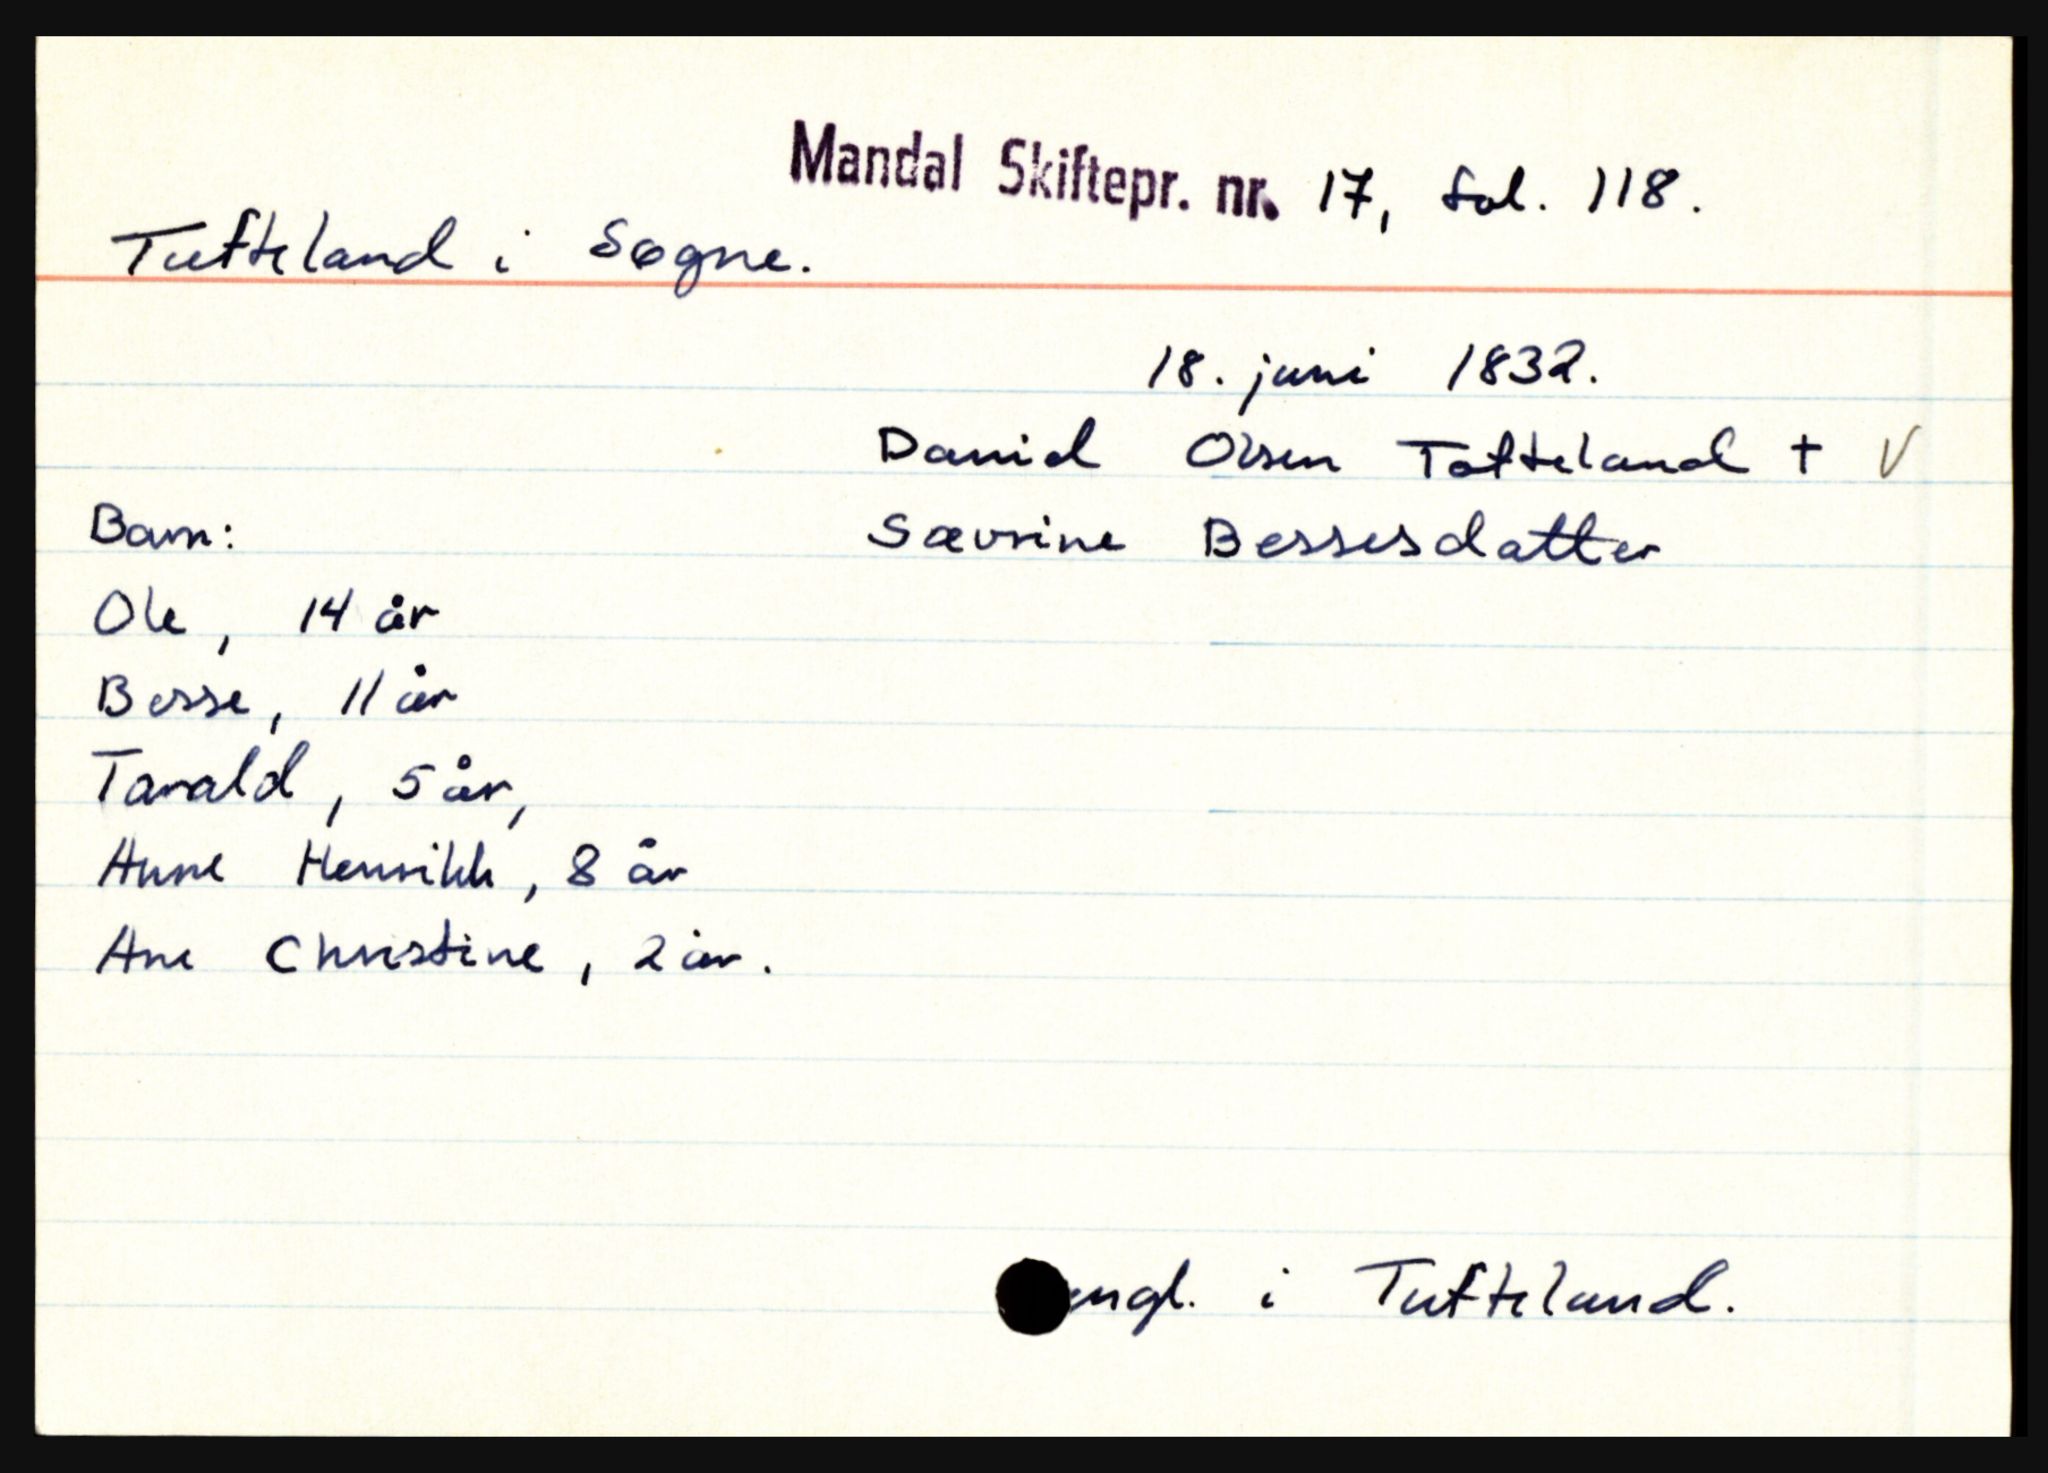 Mandal Skiftepr. nr. 17, fol. 118.
Tufteland i Søgne.
18. juni 1832.
Daniel Olsen Tofteland + V
Barn:
Sævrine Bessesdatter
Ole, 14 år
Besse, 11 år
Tarald, 5 år,
Anne Henrikke, 8 år
Ane Christine, 2 år.
engl. i Tufteland.